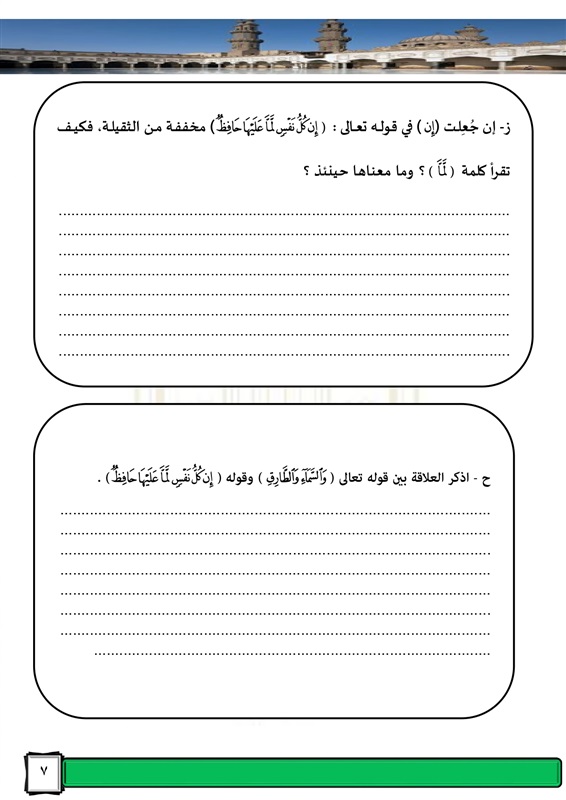 ز- إن جُعِلت (إِن) في قوله تعالى : ( إِن كُلُّ نَفْسٍ لَّمَّا عَلَيْهَا حَافِظٌ) مخففة من الثقيلة، فكيف
تقرأ كلمة ( لَمَّا ) ؟ وما معناها حينئذ ؟
................................................................................
................................................................................
................................................................................
................................................................................
................................................................................
................................................................................
................................................................................
................................................................................
ح - اذكر العلاقة بين قوله تعالى ( وَٱلسَّمَآءِ وَٱلطَّارِقِ ) وقوله ( إِن كُلُّ نَفْسٍ لَّمَّا عَلَيْهَا حَافِظٌ ) .
................................................................................
................................................................................
................................................................................
................................................................................
................................................................................
................................................................................
................................................................................
................................................................................
٧